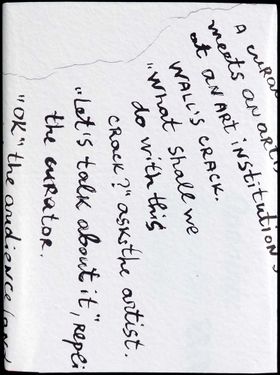 A
meets an
at an ART INSTITUTION
WALL'S CRACK.
"What shall we
do with this
crack?" asks the artist.
"Let's talk about it", repli
the curator.
"OK" the audience